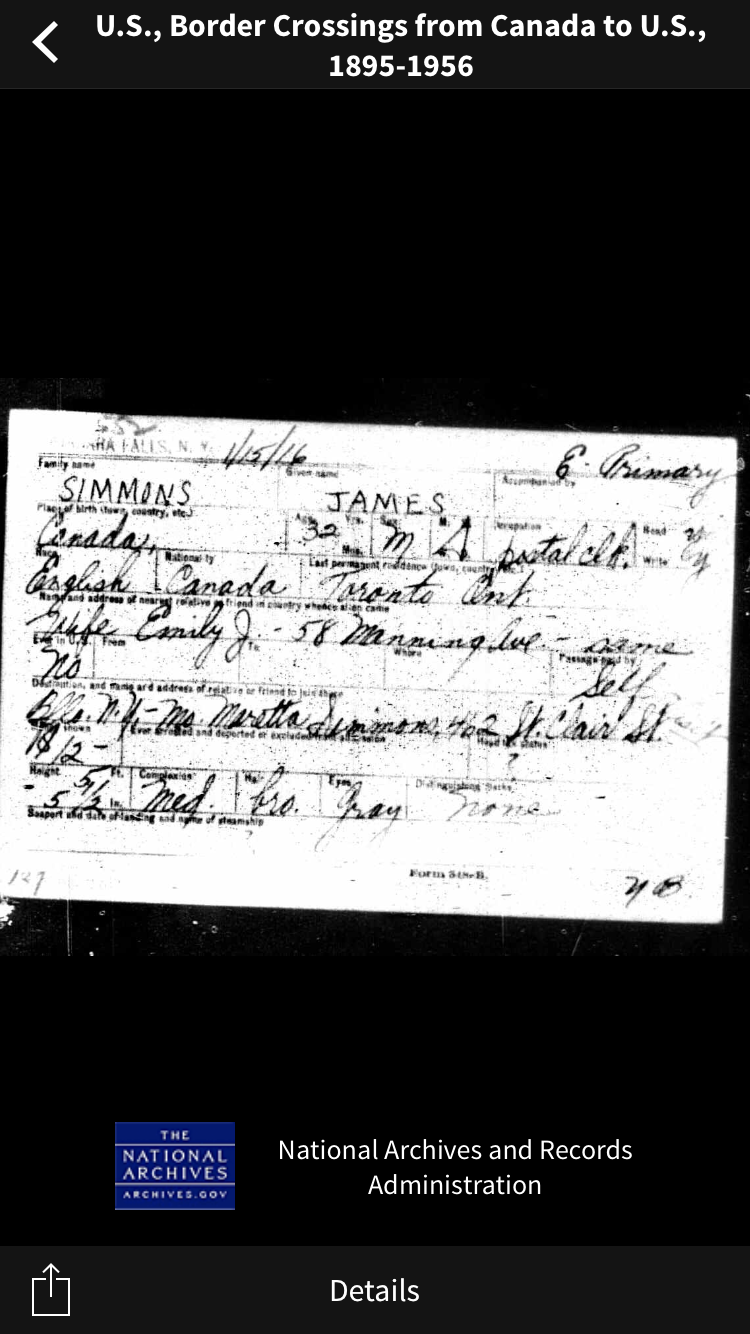 U.S., Border Crossings from Canada to U.S.,
1895-1956
FALLS, N. Y. 1/15/16 E- Primary
Family name Given name Accompanied by
SIMMONS JAMES
Place of birth (town, country, etc.) Age Yrs. Sex M. Occupation Read
Canada, 32 Mos. M postal clk. Write
Race Nationality Last permanent residence (town, country, etc.)
English Canada Toronto Ont.
Name and address of nearest relative or friend in country whence alien came
Wife Emily J. - 58 Manning Ave. - same
Ever in U.S. From To Where Passage paid by
No Self
Destination, and name and address of relative or friend to join there
N.Y. - Mo. Maretta Simmons, 462 St. Clair St.
shown Ever arrested and deported or excluded from admission Head tax status
12 - ?
Height Ft. Complexion Hair Eyes Distinguishing marks
5 5 1/2 In. Med. bro. Gray none
Seaport and date of landing and name of steamship
127 Form 548-B.
THE
NATIONAL
ARCHIVES
ARCHIVES.GOV
National Archives and Records
Administration
Details